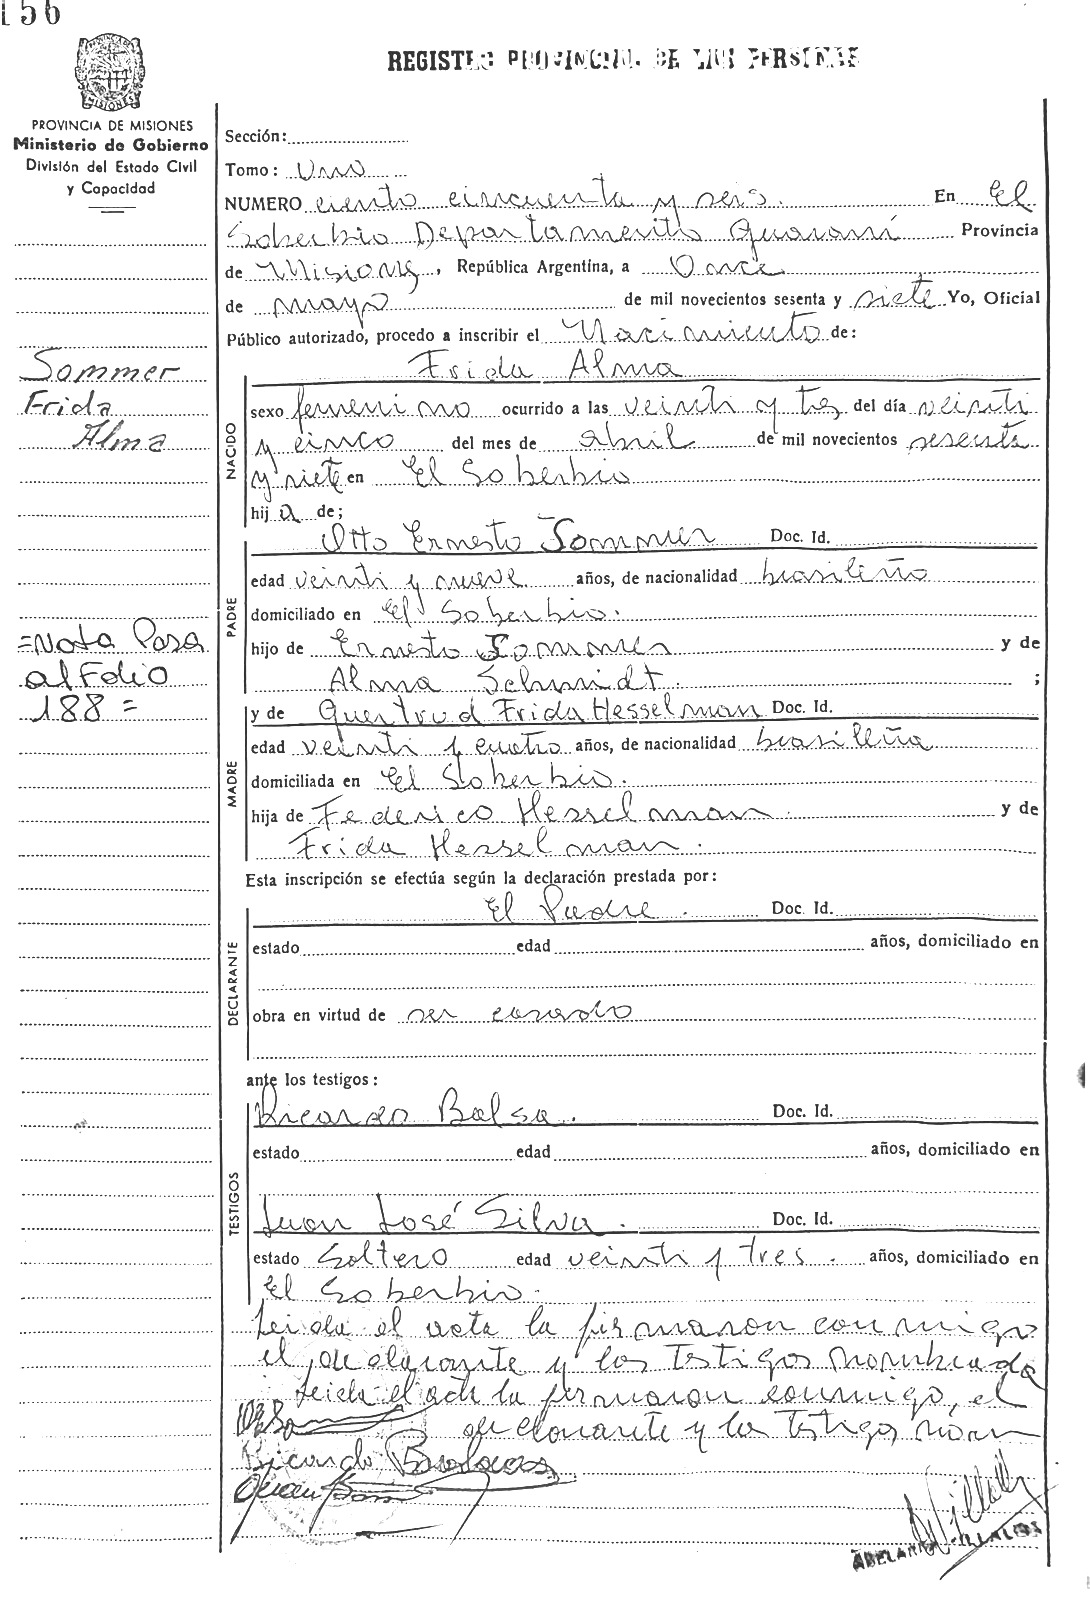 156
REGISTRO PROVINCIAL DE LAS PERSONAS
PROVINCIA DE MISIONES
Ministerio de Gobierno
División del Estado Civil
y Capacidad
Sommer
Frida
Alma
=Nota Pasa
al Folio
188=
Sección:
Tomo: Uno
NUMERO ciento cincuenta y seis. En El
Soberbio Departamento Guaraní Provincia
de Misiones, República Argentina, a Once
de mayo de mil novecientos sesenta y siete Yo, Oficial
Público autorizado, procedo a inscribir el Nacimiento de:
Frida Alma
NACIDO
sexo femenino ocurrido a las veinti y tres del día veinti
y cinco del mes de abril de mil novecientos sesenta
y siete en El Soberbio
hija de;
PADRE
Otto Ernesto Sommer Doc. Id.
edad veinti y nueve años, de nacionalidad brasileño
domiciliado en El Soberbio.
hijo de Ernesto Sommer y de
Alma Schmidt. ;
MADRE
y de Guertrud Frida Hesselman Doc. Id.
edad veinti y cuatro años, de nacionalidad brasileña
domiciliada en El Soberbio.
hija de Federico Hesselman. y de
Frida Hesselman.
Esta inscripción se efectúa según la declaración prestada por:
DECLARANTE
El Padre. Doc. Id.
estado edad años, domiciliado en
obra en virtud de ser casado
ante los testigos:
TESTIGOS
Ricardo Balsa. Doc. Id.
estado edad años, domiciliado en
Juan José Silva. Doc. Id.
estado Soltero edad veinti y tres. años, domiciliado en
El Soberbio.
Leida el acta la firmaron conmigo
el declarante y los testigos nombrado
leida el acta la firmaron conmigo, el
declarante y los testigos nom
Ricardo